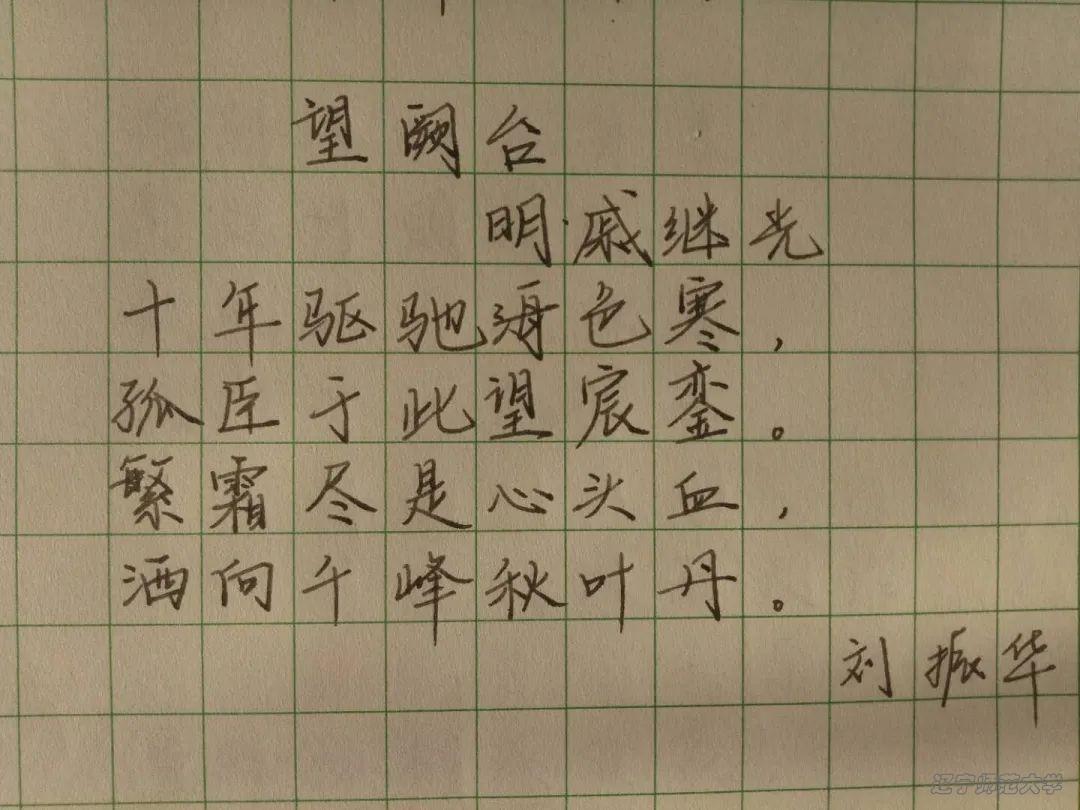 望阙台
明·戚继光
十年驱驰海色寒，
孤臣于此望宸銮。
繁霜尽是心头血，
洒向千峰秋叶丹。
刘振华
辽宁师范大学